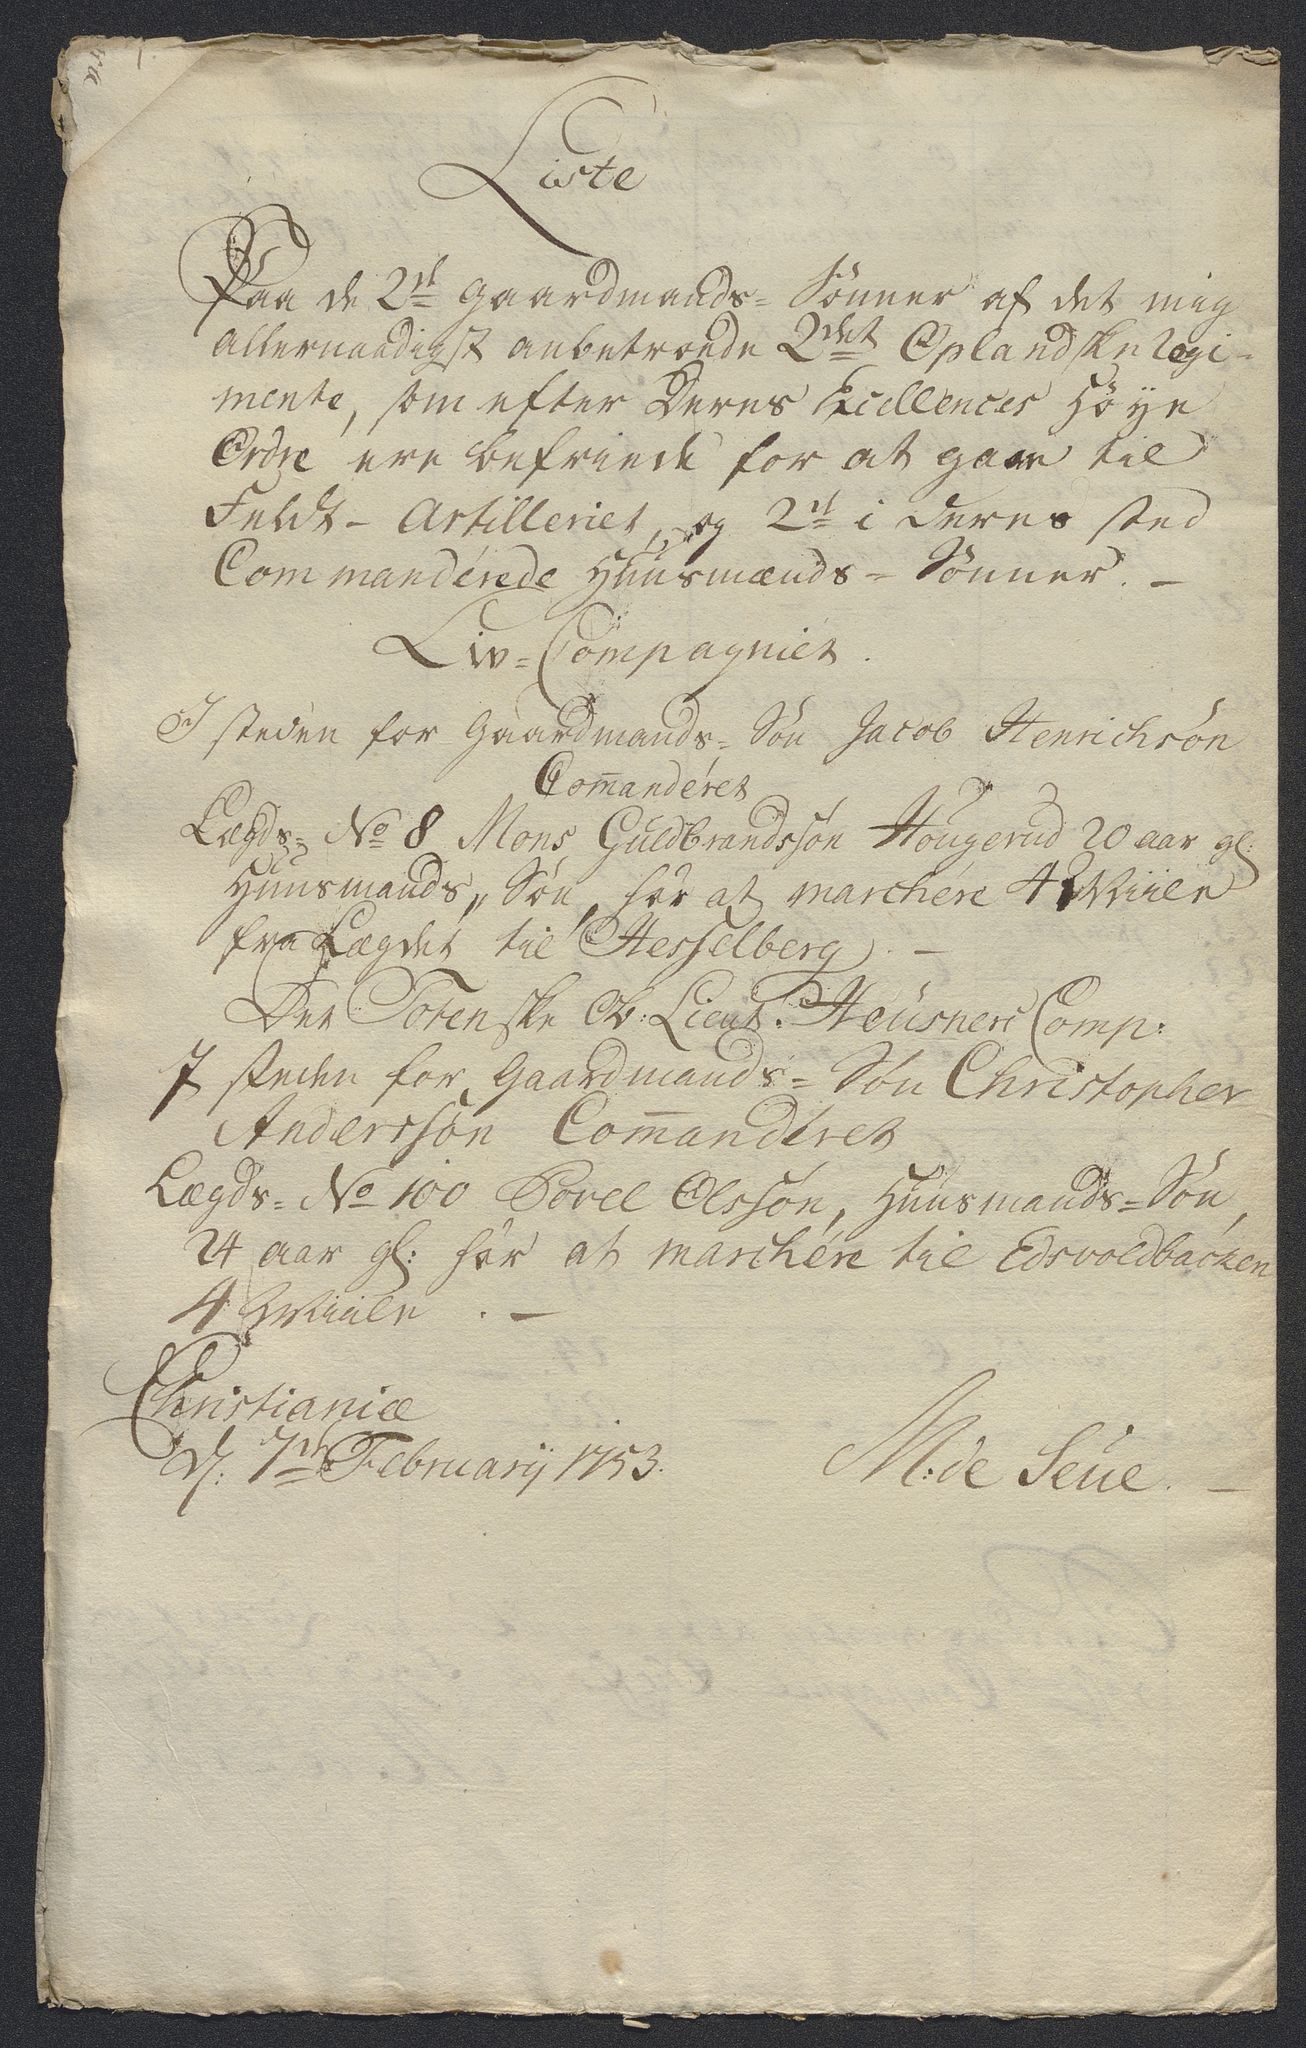 Liste
Paa de 2de Gaardmands= Sönner af det mig
allernaadigst anbetroede 2det Oplandske Regi-
mente, som efter Deres Excellences Höye
Ordre ere befriede for at gaae til
Feldt- Artilleriet, og 2de i deres sted
Commanderede Huusmænds= Sönner. -
Liv=Compagniet.
I steden for Gaardmands= Sön Jacob Henrichsön
Com̄anderet
Lægds= No 8 Mons Guldbrandssön Hougerud 20 aar gl:
Huusmands,, Sön, har at marchere 4 Miile
fra Lægdet til Hesselberg. -
Det Totenske Ob: Lieut: Heusners Comp:
I steden for Gaardmands= Sön Christopher
Anderssön Com̄anderet
Lægds= No 100 Povel Olssön, Huusmands=Sön,
24 aar gl: har at marchere til Edsvoldbacken
4 Miile. -
Christiania
d: 7de Februarij 1753.
M: de Seue. -